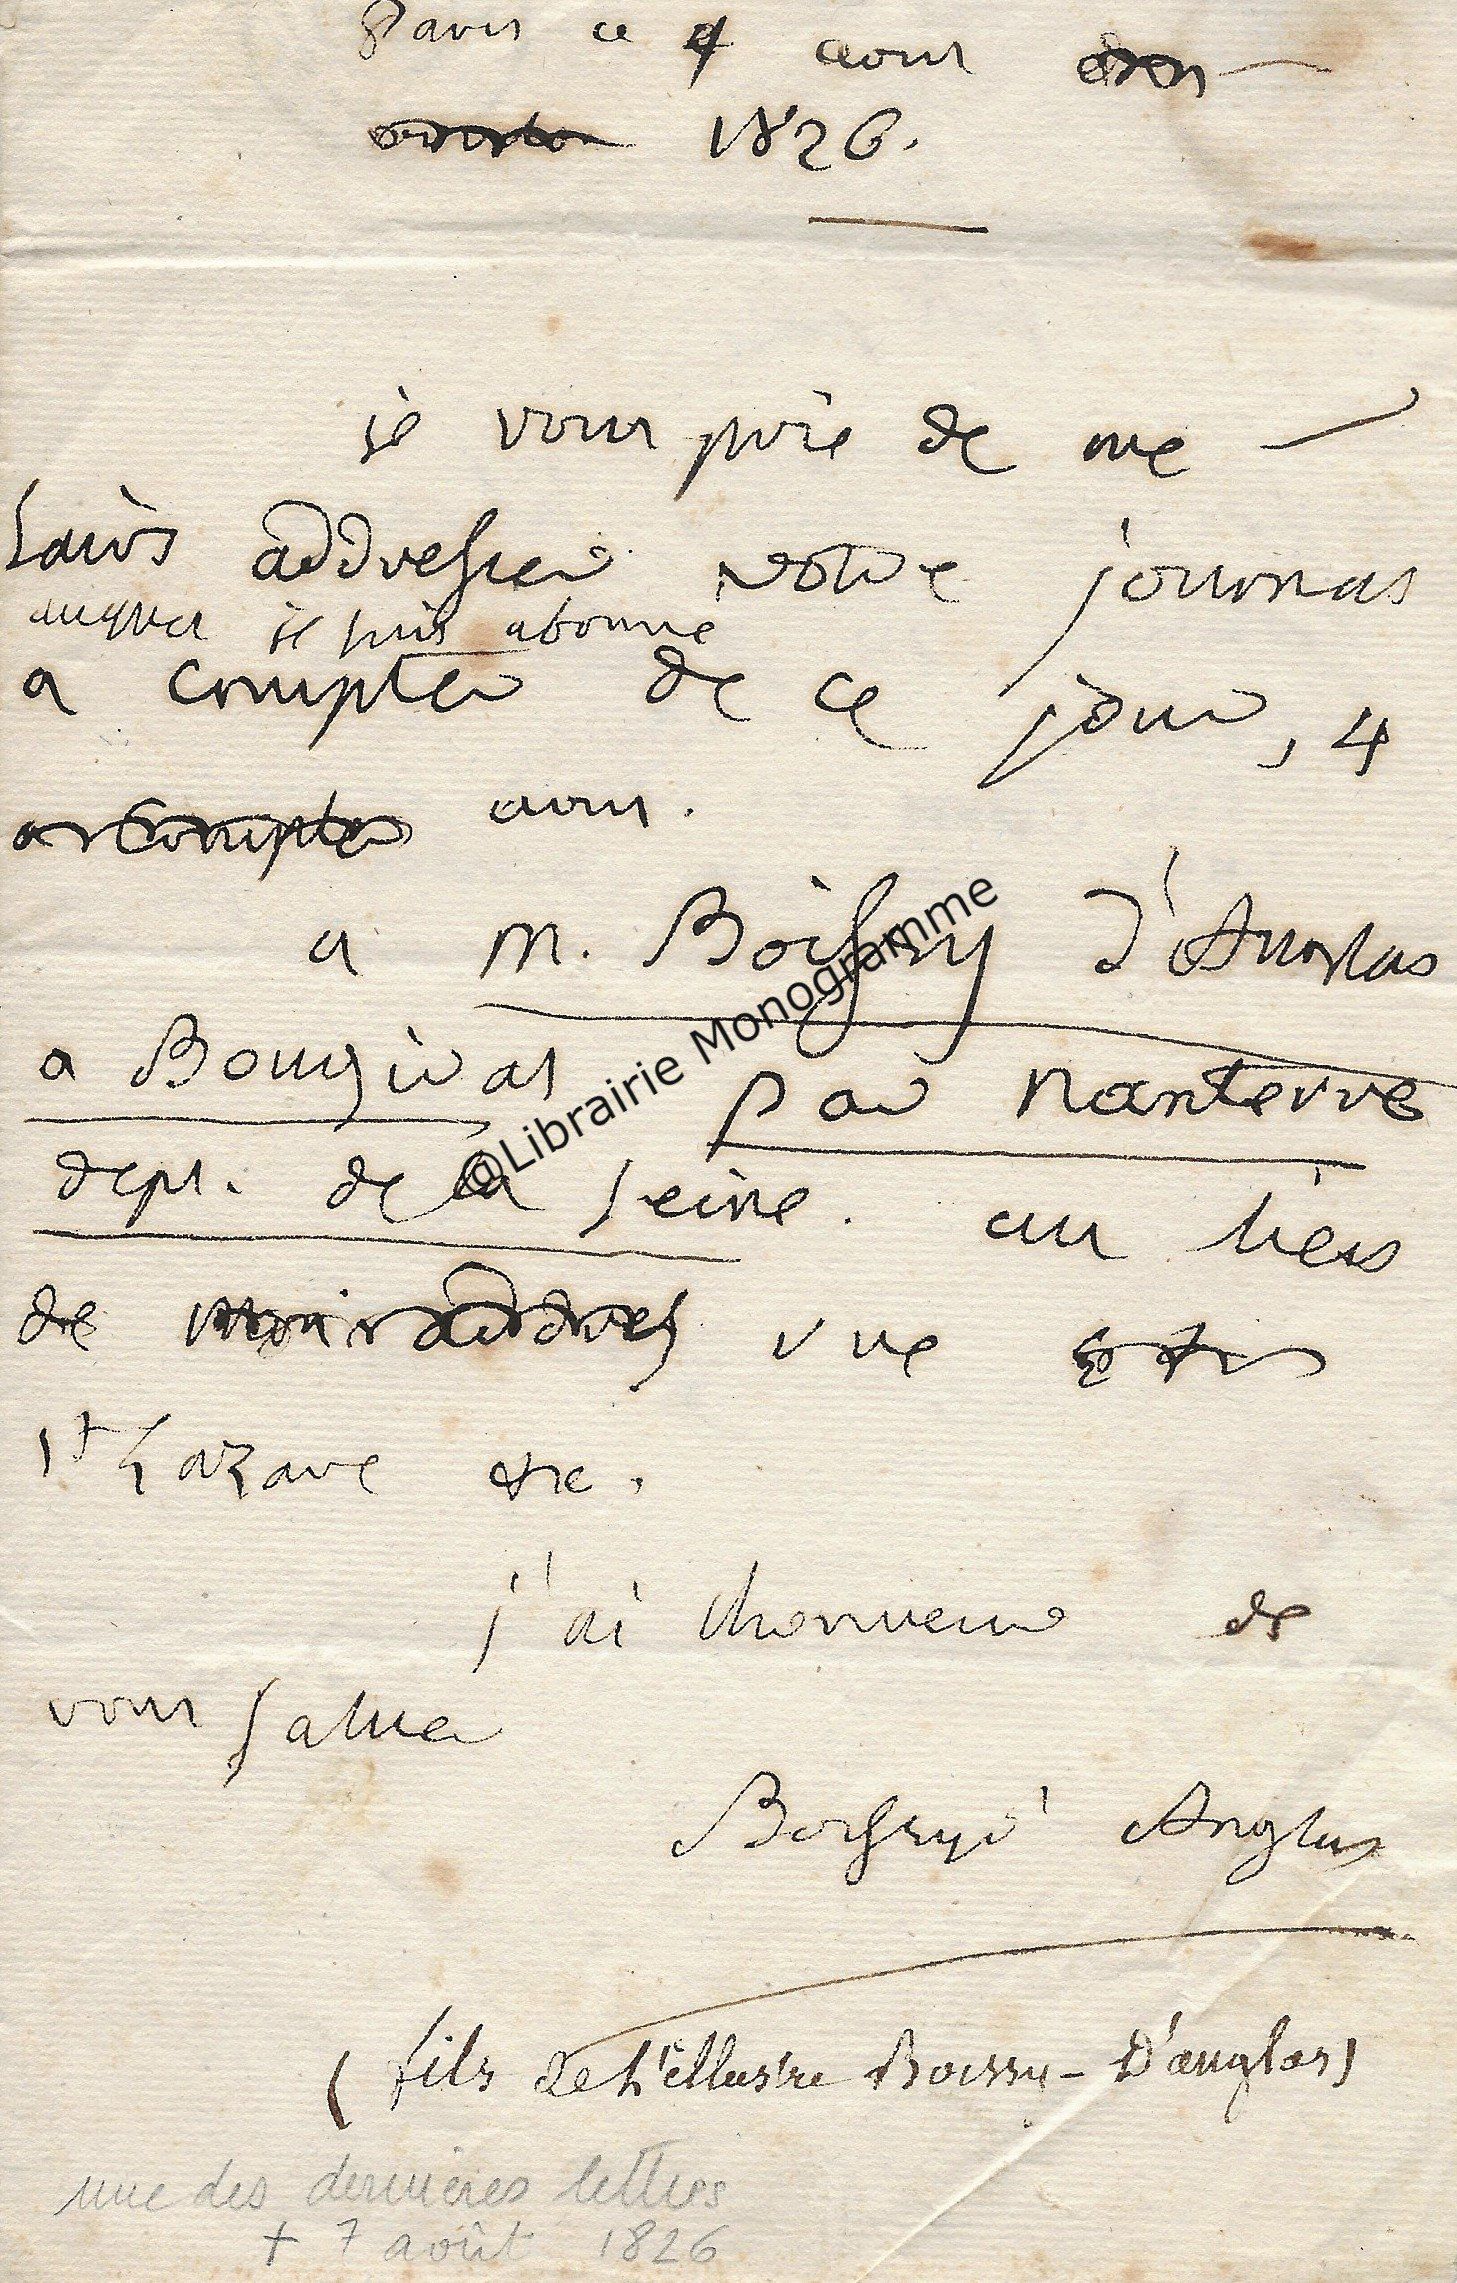 Paris ce 4 aout
1826.
je vous prie de me
faire addresser votre journal
auquel je suis abonné
a compter de ce jour, 4
a compter aout.
a M. Boissy d'Anglas
a Bougival par Nanterre
dept. de la Seine. au lieu
de mon addresse rue
St Lazare etc.
j'ai lhonneur de
vous saluer
Boissy d'Anglas
(fils de l'illustre Boissy-D'anglas)
une des dernières lettres
+ 7 août 1826
@Librairie Monogramme